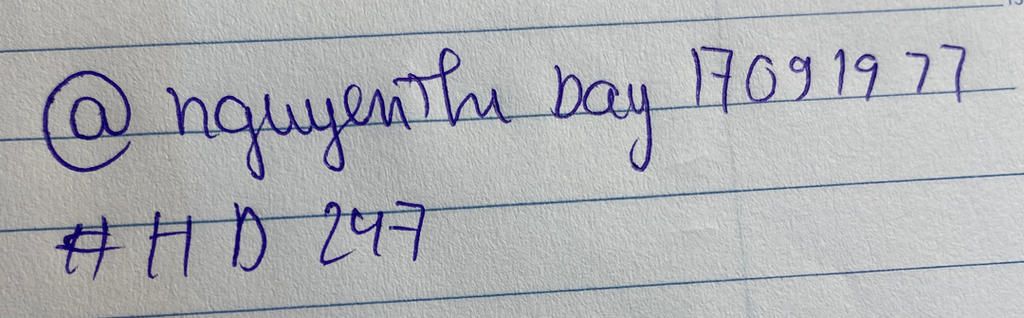 @ nguyenThu bay 17091977
# HD 247